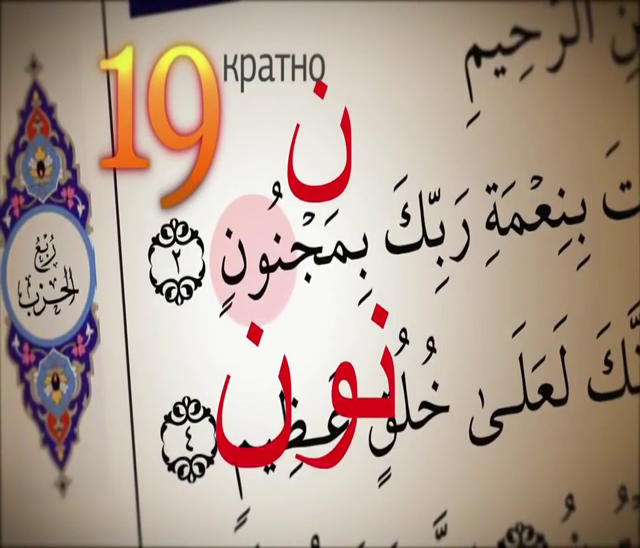 19 кратно
ن
الرَّحِيمِ
بِنِعْمَةِ رَبِّكَ بِمَجْنُونٍ ٢
نون
لَعَلَىٰ خُلُقٍ عَظِيمٍ ٤
رُبْعُ
الحِزْب